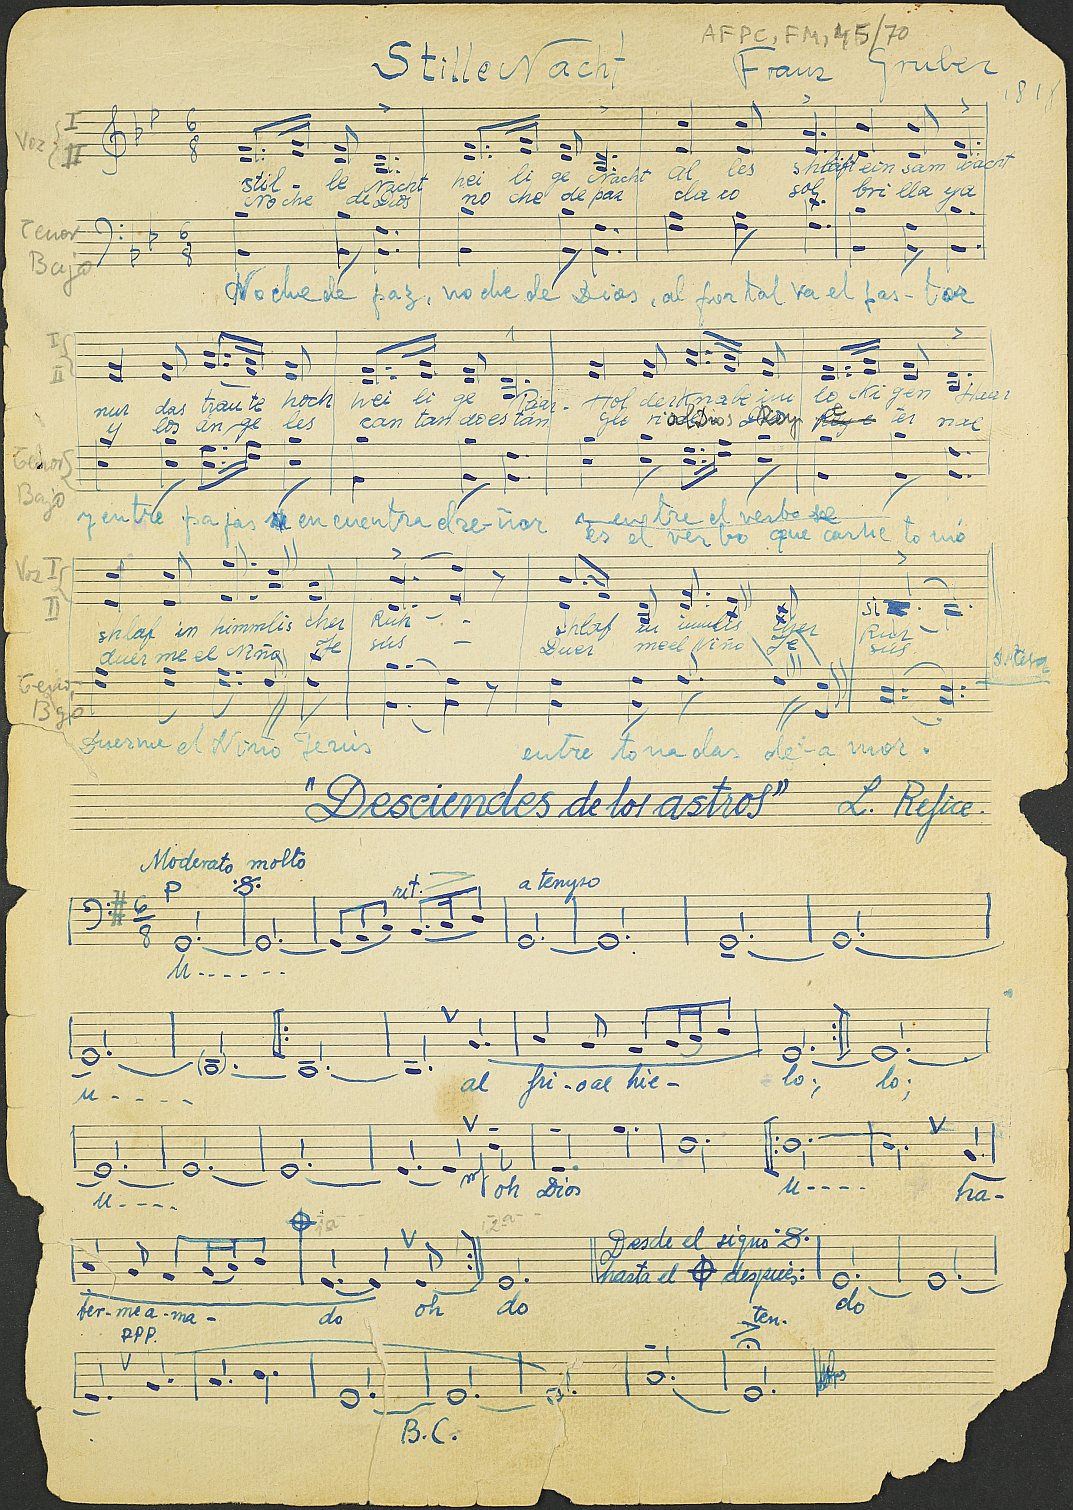 AFPC, FM, 45/70
Stille Nacht Franz Gruber
1818
Voz I
II
stil - le Nacht hei li ge Nacht al les shläft ein sam wacht
Noche de Dios no che de paz cla ro sol bri lla ya
Tenor
Bajo
Noche de paz, noche de Dios, al portal va el pas-tor
I
II
nur das trau te hoch hei li ge Paar- Hol der Knabe im lo cki gen Haar
y los án ge les can tando es tan
Tenor
Bajo
y entre pajas en cuentra al se-ñor y entre el verbo se
es el verbo que carne tomó
Voz I
II
shlaf in himmlis cher Ruh - shlaf in himmlis cher Ruh
duer me el Niño Je sús - Duer me el Niño Je sús
si
Tenor
Bajo
Duerme el Niño Jesús entre tonadas de a mor.
"Desciendes de los astros" L. Refice.
Moderato molto
P rit. a tempo
6/8
u - - - - - -
u - - - - al fri-o al hie- lo; lo;
u - - - - mf oh Dios u - - - - ha-
1ª 2ª
Desde el signo
hasta el después:
ber-me a-ma- do oh do do
PPP. ten.
B.C.